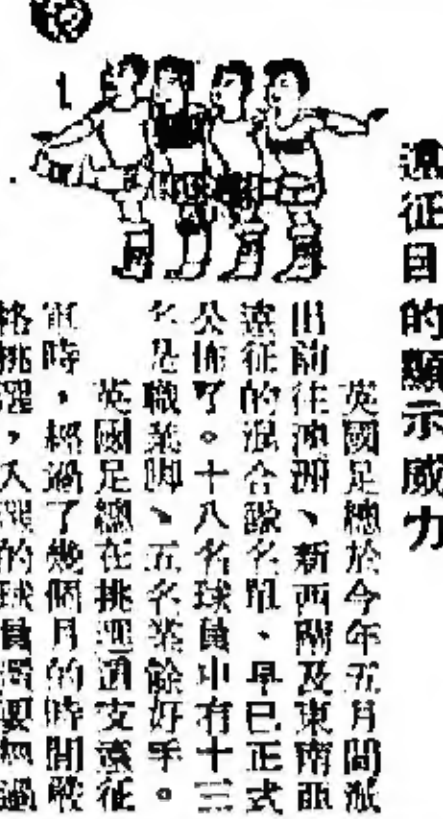 遠征目的顯示威力
英國足總於今年五月間派
出前往澳洲、新西蘭及東南亞
遠征的混合隊名單、早已正式
公佈了。十八名球員中有十三
名是職業脚、五名業餘好手。
英國足總在挑選這支遠征
軍時,經過了幾個月的時間嚴
格挑選,入選的球員需要經過
1